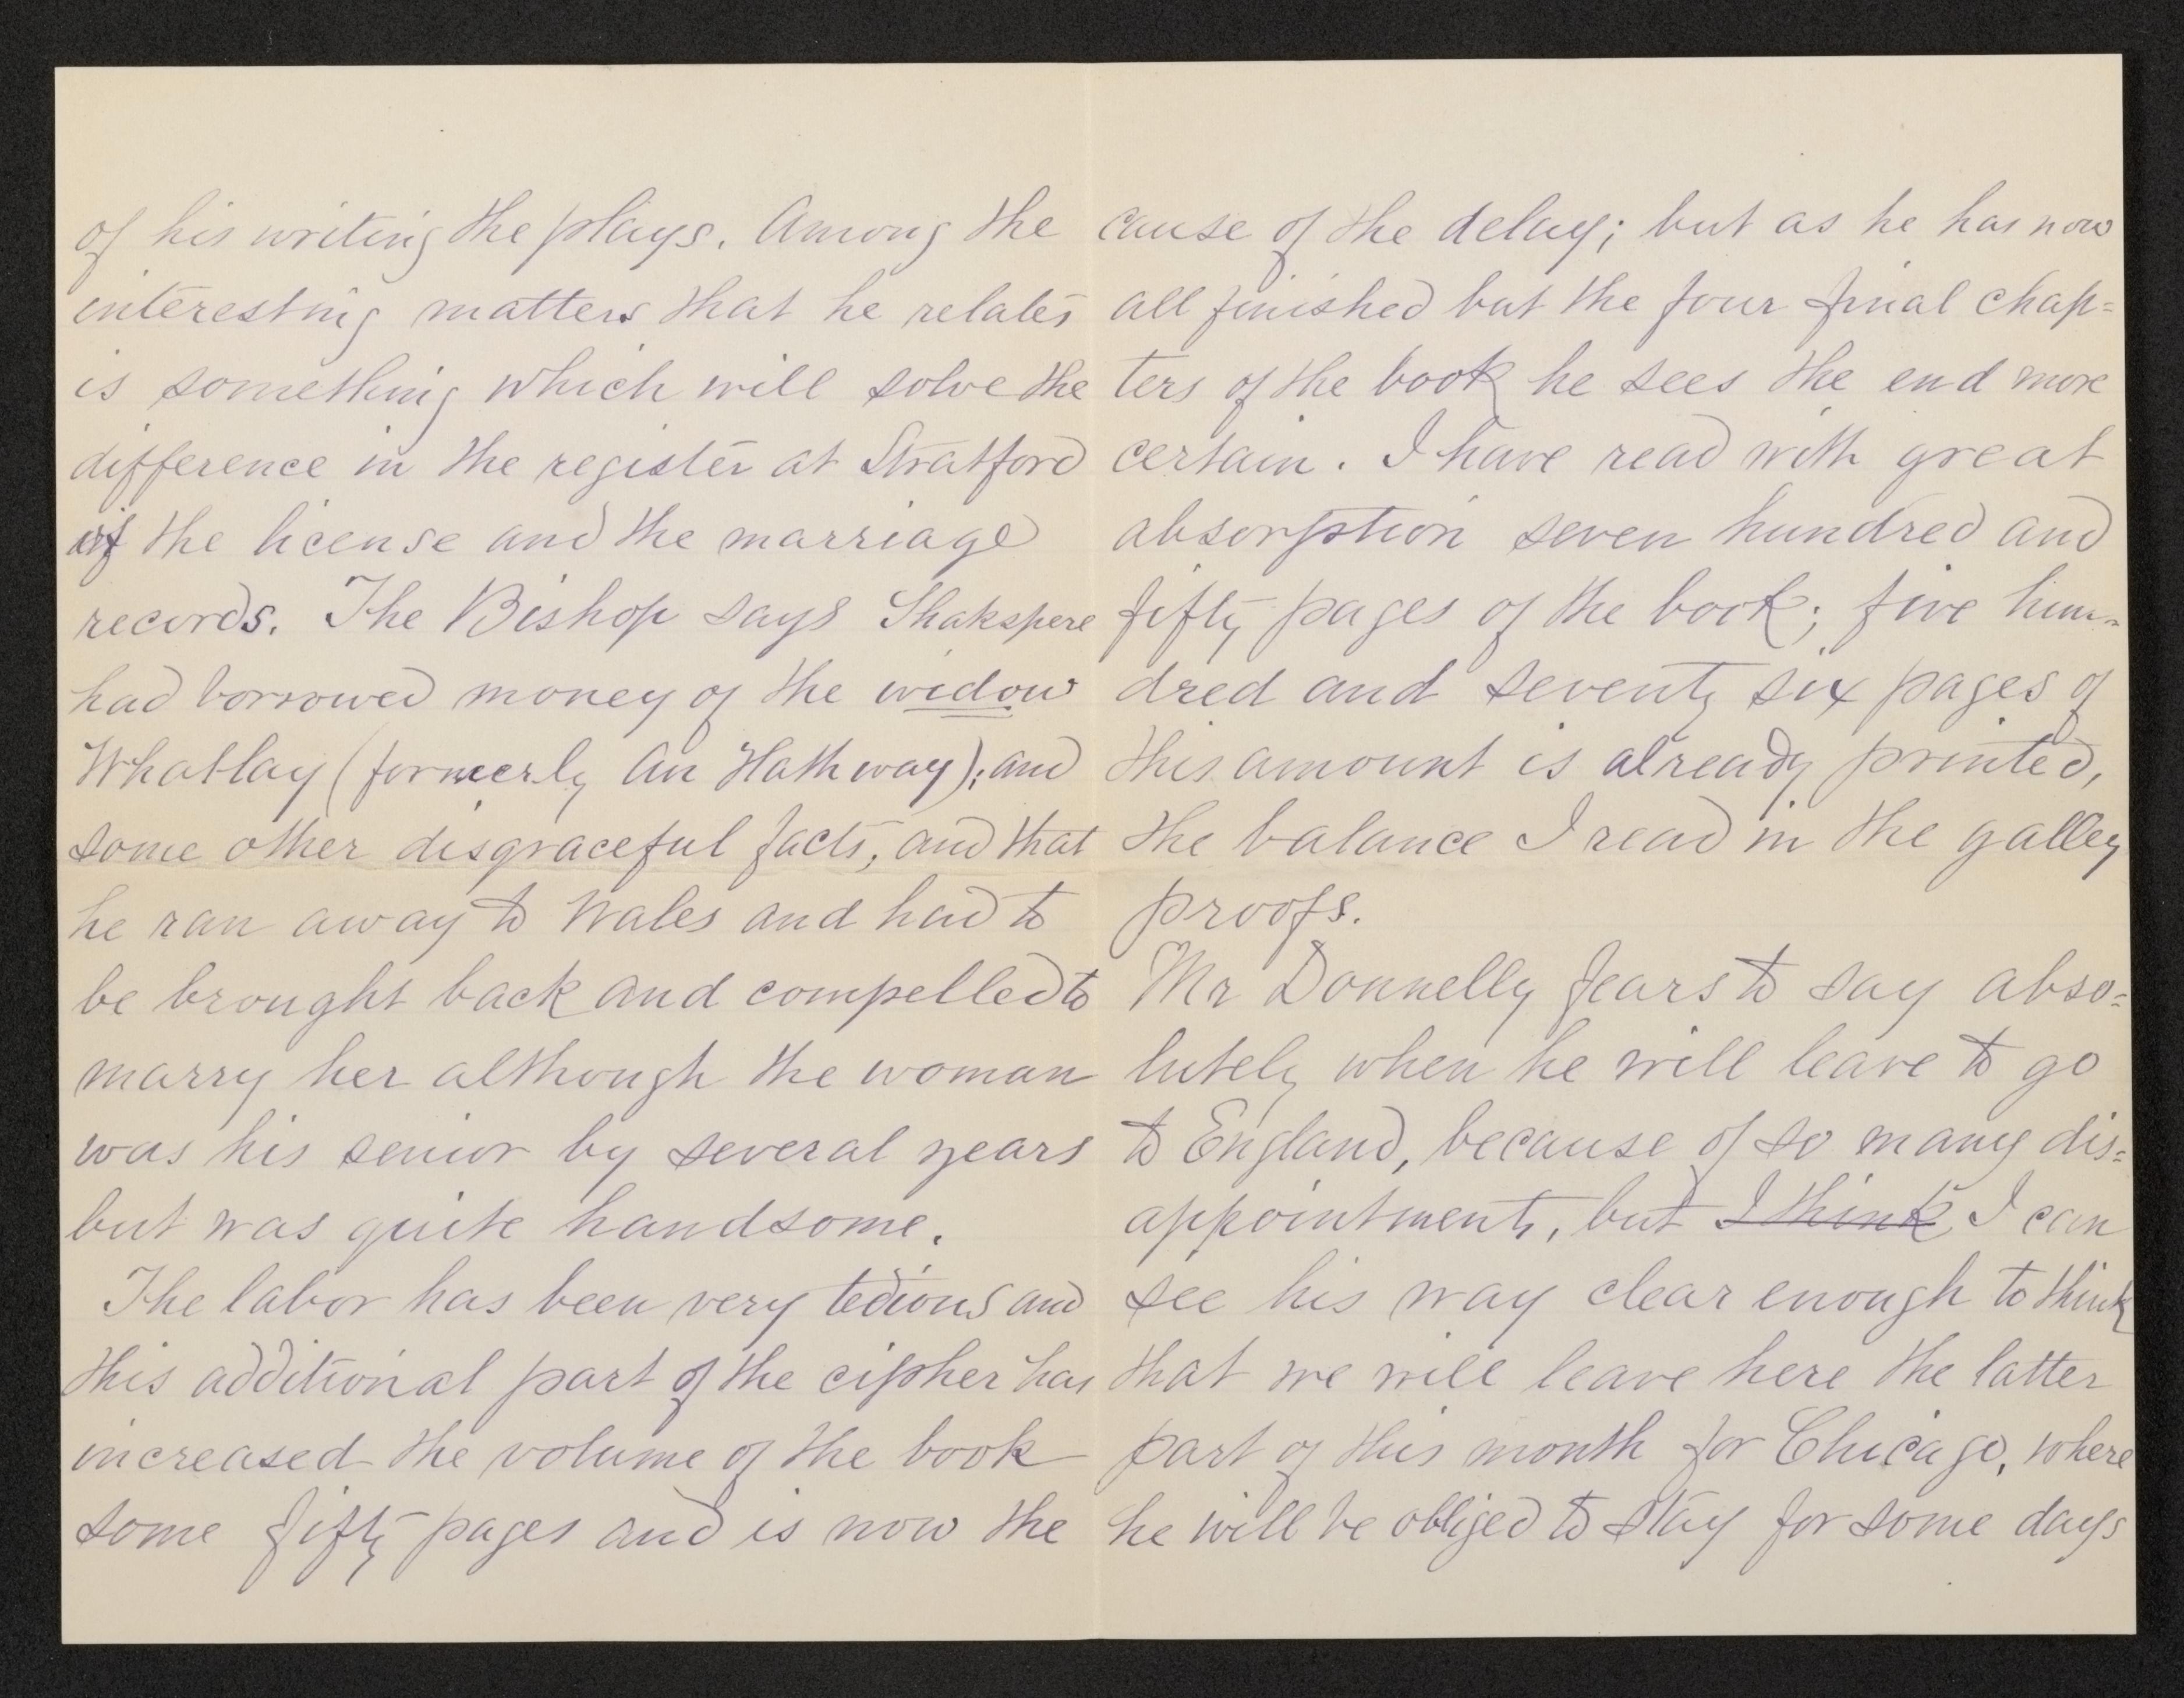 of his writing the plays. Among the
interesting matters that he relates
is something which will solve the
difference in the register at Stratford
of the license and the marriage
records. The Bishop says Shakspere
had borrowed money of the widow
Whatlay (formerly An Hathway); and
some other disgraceful facts, and that
he ran away to Wales and had to
be brought back and compelled to
marry her although the woman
was his senior by several years
but was quite handsome.
The labor has been very tedious and
this additional part of the cipher has
increased the volume of the book
some fifty pages and is now the
cause of the delay; but as he has now
all finished but the four final chap=
ters of the book he sees the end more
certain. I have read with great
absorption seven hundred and
fifty pages of the book; five hun=
dred and seventy six pages of
this amount is already printed,
the balance I read in the galley
proofs.
Mr Donnelly fears to say abso=
lutely when he will leave to go
to England, because of so many dis=
appointments, but I think I can
see his way clear enough to think
that we will leave here the latter
part of this month for Chicago, where
he will be obliged to stay for some days